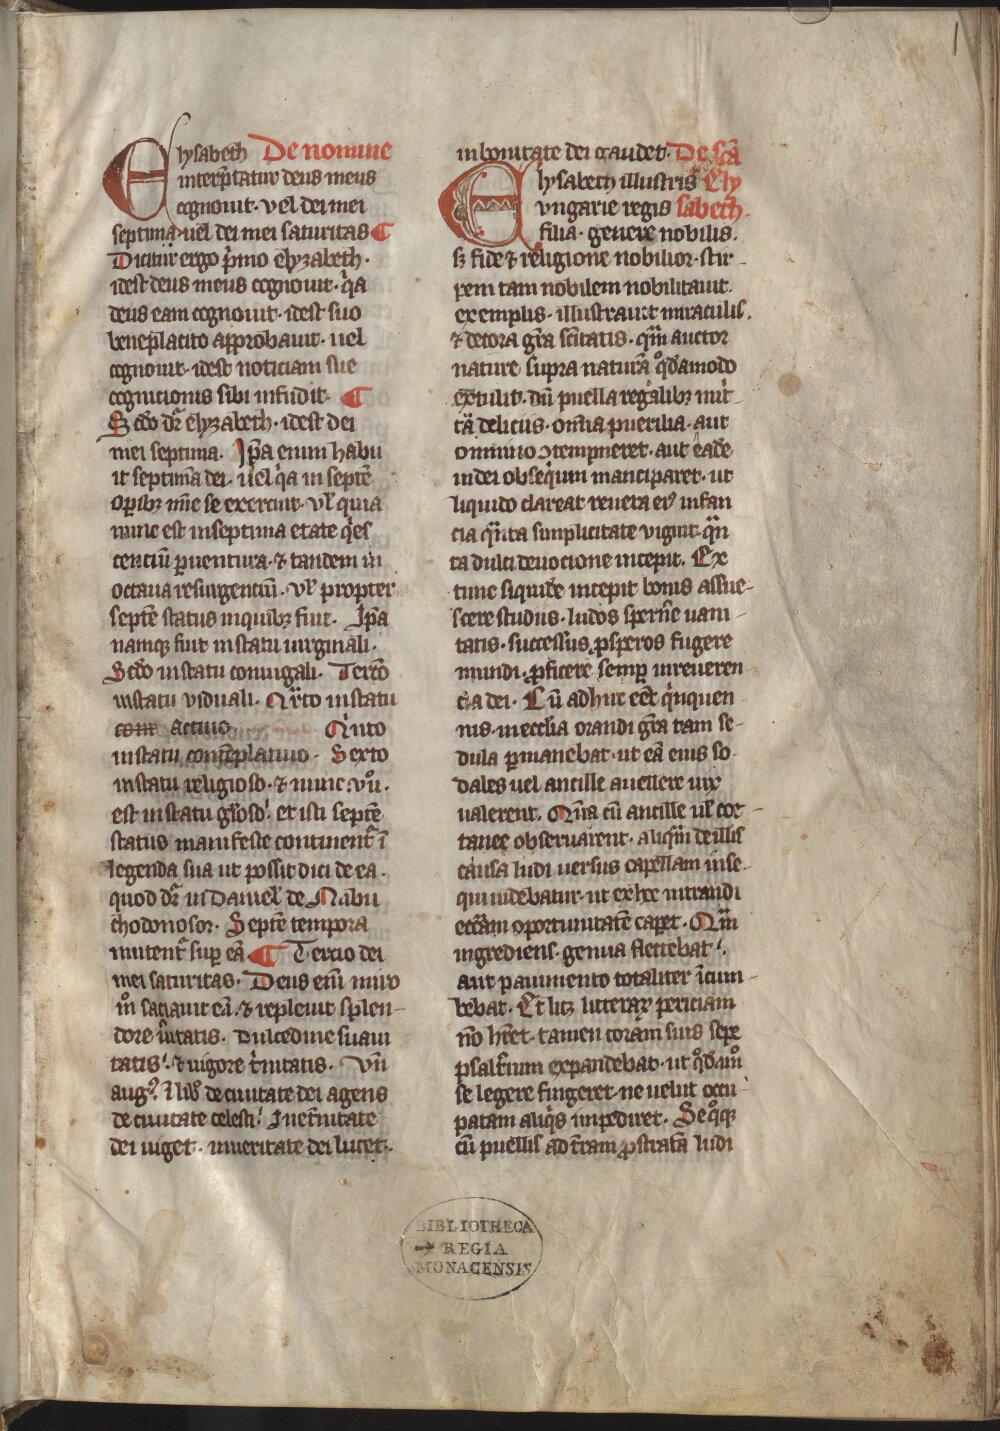 1
Elysabeth De nomine
interp̃tatur deus meus
cognouit· vel dei mei
septima· uel dei mei saturitas ¶
Dicitur ergo p̃mo elyzabeth·
idest deus meus cognouit· q̇a
deus eam cognouit· idest suo
benep̃lacito approbauit· uel
cognouit· idest noticiam sue
cognicionis sibi infudit· ¶
Scd̓o dr̃ elyzabeth· idest dei
mei septima· Ip̃a enim habu
it septimã dei· uel q̇a in septẽ
op̃ibꝫ mĩe se exercuit· vl̓ quia
nunc est inseptima etate q̇es
cenciũ ꝑuentura· ⁊ tandem in
octaua resurgenciũ· vl̓ propter
septẽ status inquibꝫ fuit· Ip̃a
namqꝫ fuit instatu uirginali·
Scd̓o instatu coniugali· Terc̓o
instatu viduali· Qr̓to instatu
com actiuo Qinto
instatu contẽplatiuo· Sexto
instatu religioso· ⁊ nunc vͦ.
est instatu gl̓oso· et isti septẽ
status manifeste continent᷑ ĩ
legenda sua ut possit dici de ea·
quod dr̃ in Daniel̓ de Nabu
chodonosor· Septẽ tempora
mutent᷑ suꝑ eã ¶ Tercio dei
mei saturitas· Deus eni᷑ miro
mͦ saciauit eã· ⁊ repleuit splen-
dore u̓itatis· Dulcedine suaui
tatis· ⁊ uigore t̓nitatis· Vñ
aug⁹· libͦ de ciuitate dei agens
de ciuitate celesti· In et̓nitate
dei uiget· inueritate dei lucet··
inbonitate dei gaudet· De sc̃a
Elysabeth illustris Ely
vngarie regis sabeth·
filia· genere nobilis·
sꝫ fide ⁊ religione nobilior· stir-
pem tam nobilem nobilitauit·
exemplis· illustrauit miraculis·
⁊ decora gr̃a sc̃itatis· qm̃ auctor
nature supra naturã qͦd̃amodo
extulit· dũ puella regalibꝫ nut̓-
tã deliciis· om̃ia puerilia· aut
omnino ꝯtempneret· aut eãde
indei obseq̇um manciparet· ut
liquido clareat reuera ei⁹ infan
cia qñta simplicitate viguit· qñ
ta dulci deuocione incepit· Ex
tunc siquid̃e incepit bonis assue-
scere studiis· ludos sp̃erne uani-
tatis· successus ꝓsperos fugere
mundi· ꝓficere semꝑ inreueren
cia dei· Cũ adhuc eẽt q̇nquen
nis· in eccl̃ia orandi gr̃a tam se-
dula ꝑmanebat· ut eã eius so-
dales uel ancille auellere uix
ualerent· Qña cũ ancille ul̓ coe-
tanee obseruarent· aliqm̃ deillis
causa ludi uersus capellam inse-
qui uidebatur· ut exhoc intrandi
ecc̃iam oportunitatẽ caꝑet· Qm̃
ingrediens· genua flectebat·
aut pauimento totaliter ĩcum-
bebat· Et licꝫ litteraꝝ periciam
nͦo hr̃et· tamen coram suis sepe
psalt̓ium expandebat· ut qͦd̃amͦ
se legere fingeret· ne uelut occu-
patam aliq̇s impediret· Se qͦqꝫ
cũ puellis ad t̓ram ꝓstratã ludi
BIBLIOTHECA
REGIA
MONACENSIS